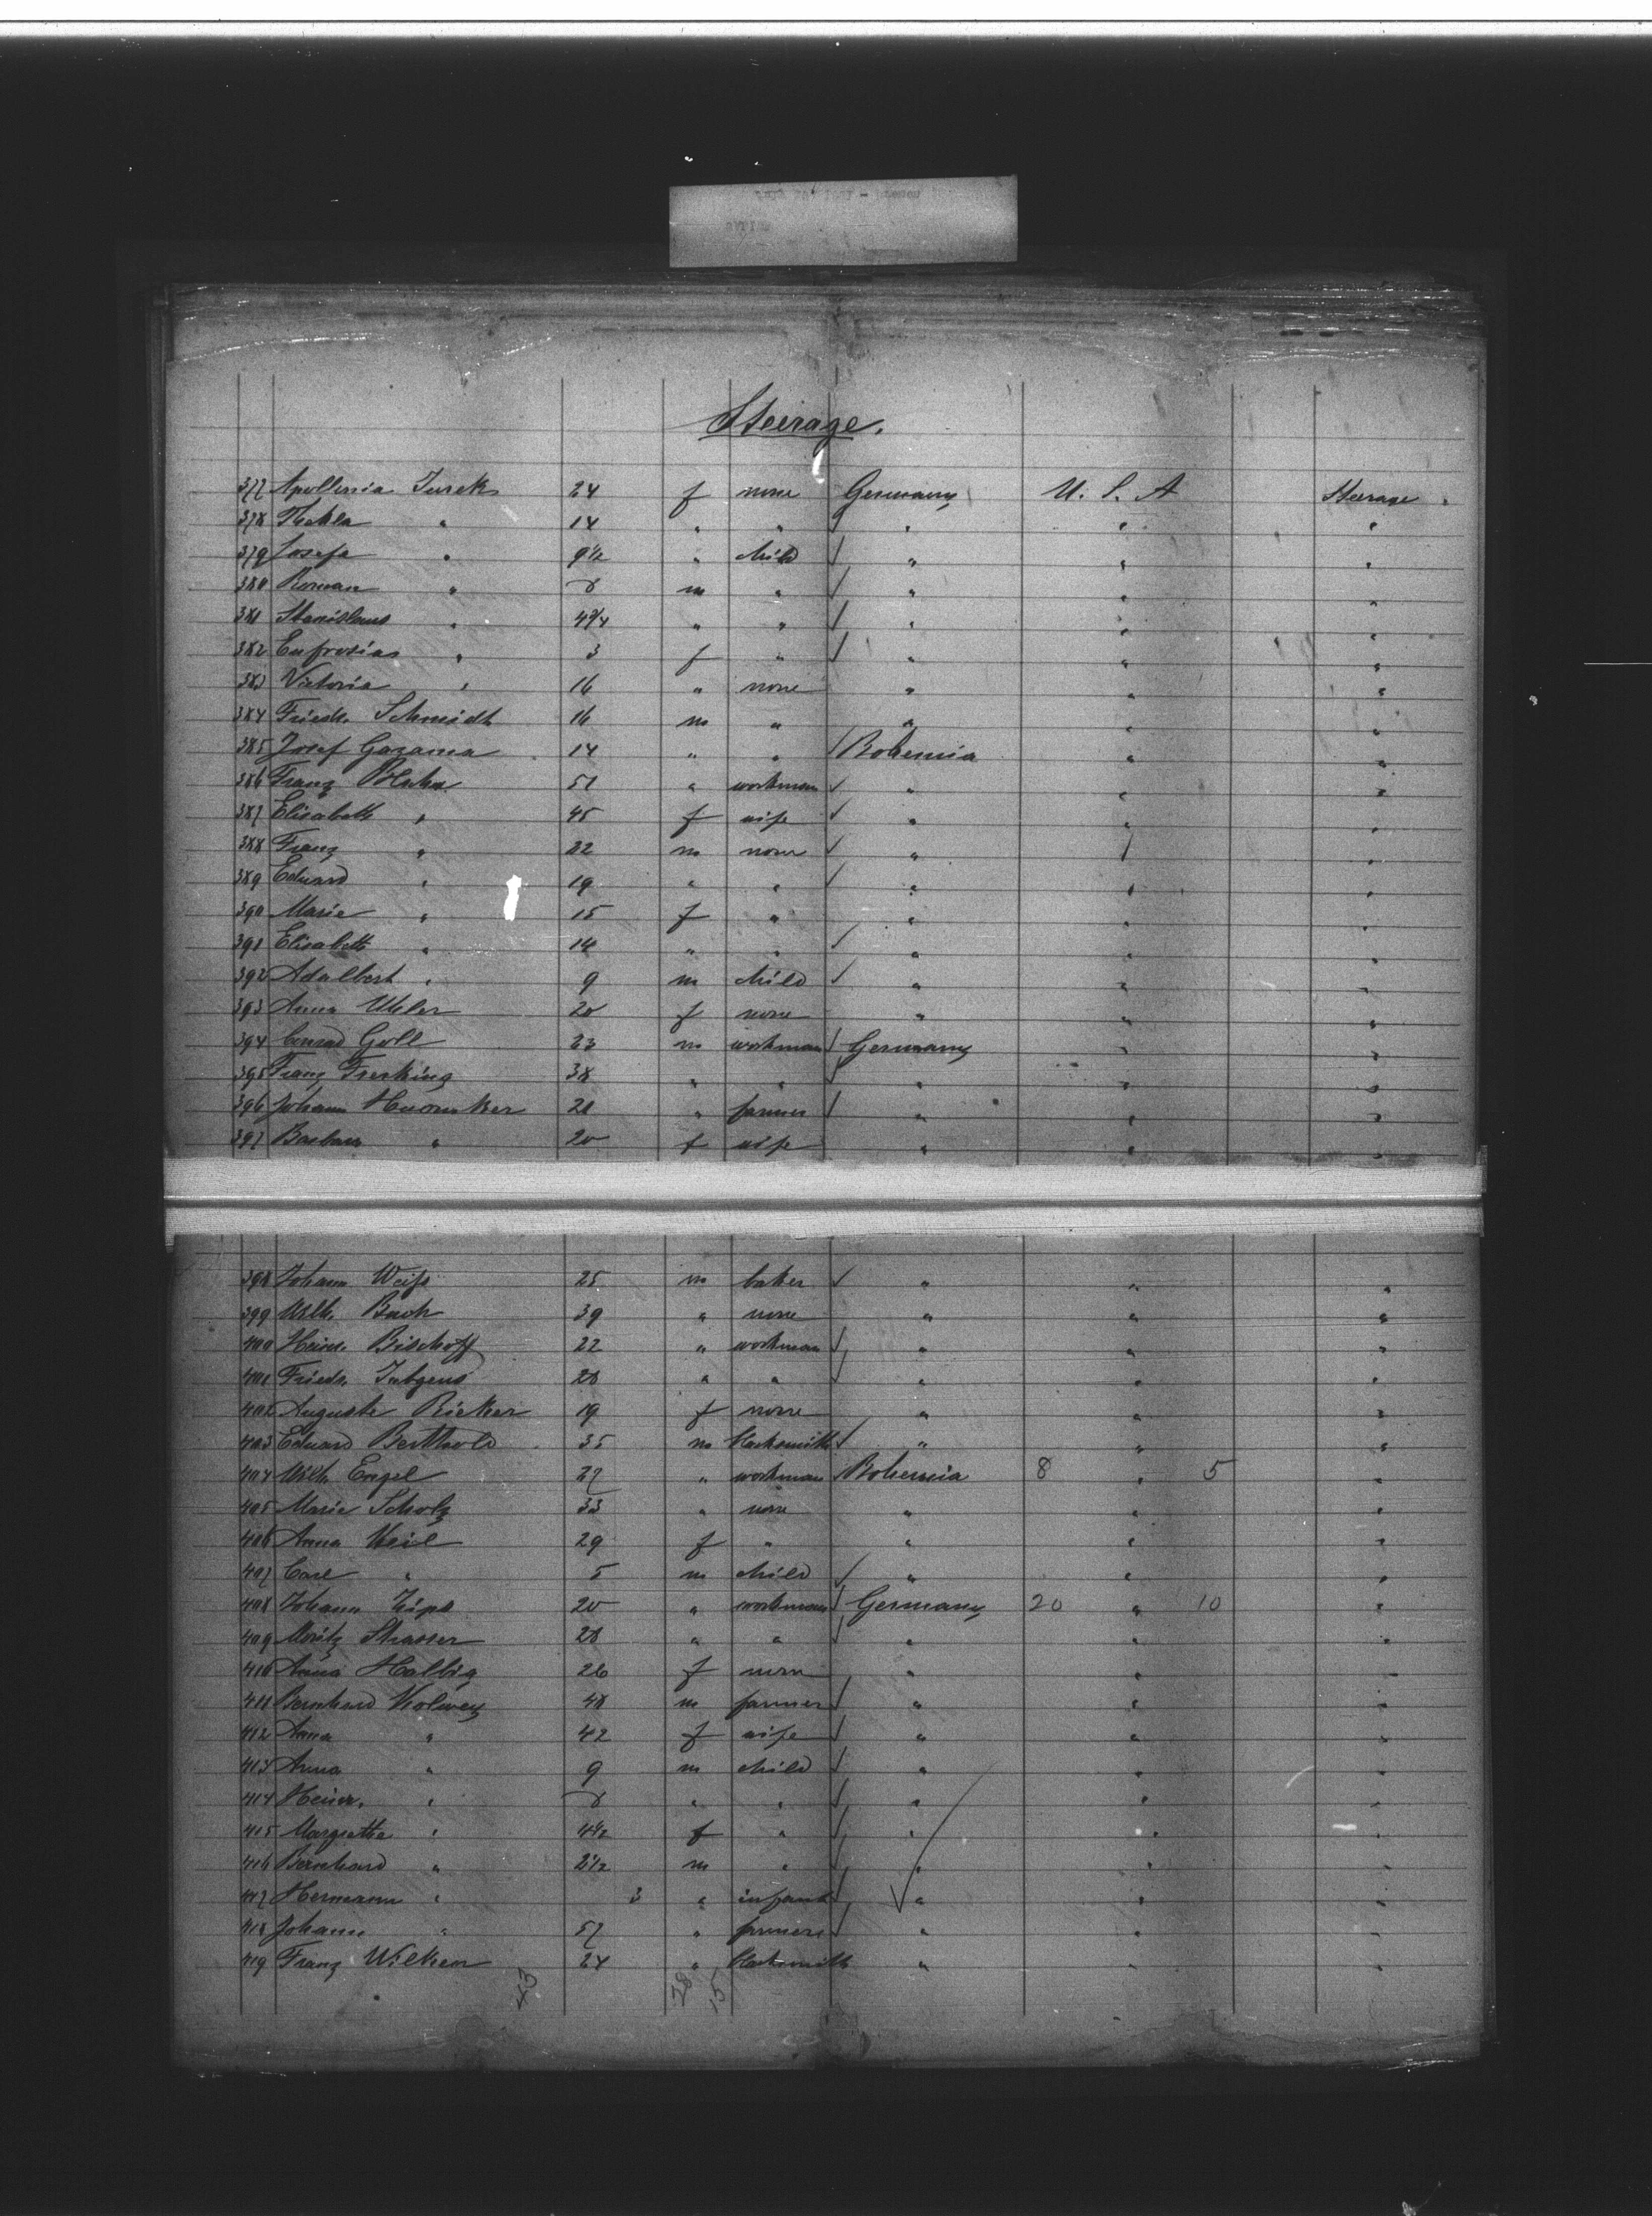 Steerage.
377 Apollonia Turek 24 f none Germany U. S. A Steerage
378 Thekla " 14 " " " " "
379 Josefa " 9 1/2 " child " " "
380 Roman " 8 m " " " "
381 Stanislaus " 4 3/4 " " " " "
382 Eufrosia " 3 f " " " "
383 Victoria " 16 " none " " "
384 Friedr. Schmidt 16 m " " " "
385 Josef 14 " " Bohemia " "
386 Franz Blaha 51 " workman " " "
387 Elisabeth " 45 f wife " " "
388 Franz " 22 m none " " "
389 Eduard " 19 " " " " "
390 Marie " 15 f " " " "
391 Elisabeth " 14 " " " " "
392 Adalbert " 9 m child " " "
393 Anna 20 f none " " "
394 Conrad Goll 23 m workman Germany " "
395 Franz Frerking 38 " " " " "
396 Johann 28 " farmer " " "
397 Barbara " 20 f wife " " "
398 Johann Weiß 25 m baker " " "
399 Wilh. Bach 39 " none " " "
400 Heinr. Bischoff 22 " workman " " "
401 Friedr. 28 " " " " "
402 Auguste Rieker 19 f none " " "
403 Eduard Berthold 35 m blacksmith " " "
404 Wilh. Engel 27 " workman Bohemia 8 " 5 "
405 Marie Scholz 33 " none " " "
406 Anna Weil 29 f " " " "
407 Carl " 5 m child " " "
408 Johann 20 " workman Germany 20 " 10 "
409 Moritz Strasser 28 " " " " "
410 Anna Halbig 26 f none " " "
411 Bernhard Kolwey 48 m farmer " " "
412 Anna " 42 f wife " " "
413 Anna " 9 m child " " "
414 Heinr. " 8 " " " " "
415 Margrethe " 4 1/2 f " " " "
416 Bernhard " 2 1/2 m " " " "
417 Hermann " 3 " infant " " "
418 Johann " 57 " farmer " " "
419 Franz Wilken 24 " blacksmith " " "
43 28 15